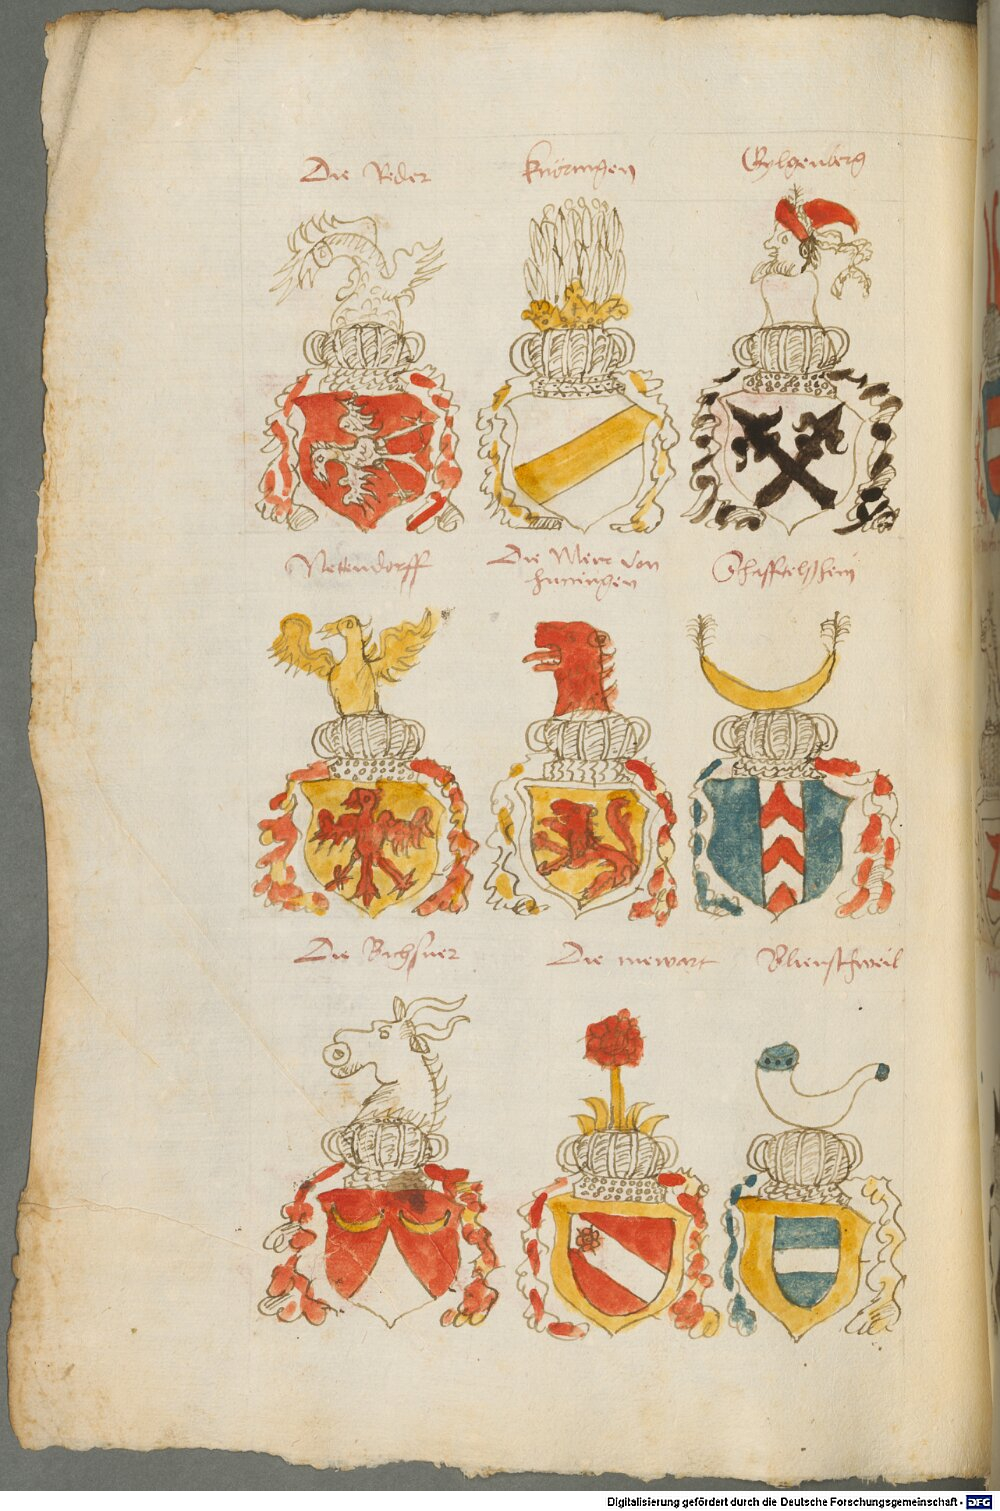 Die Reder
Knöringen
Gylgenberg
Nettendorff
Die Meier von
huningen
Schafftelsheim
Die Bichsner
Die mewart
Blienschweil
Digitalisierung gefördert durch die Deutsche Forschungsgemeinschaft - DFG